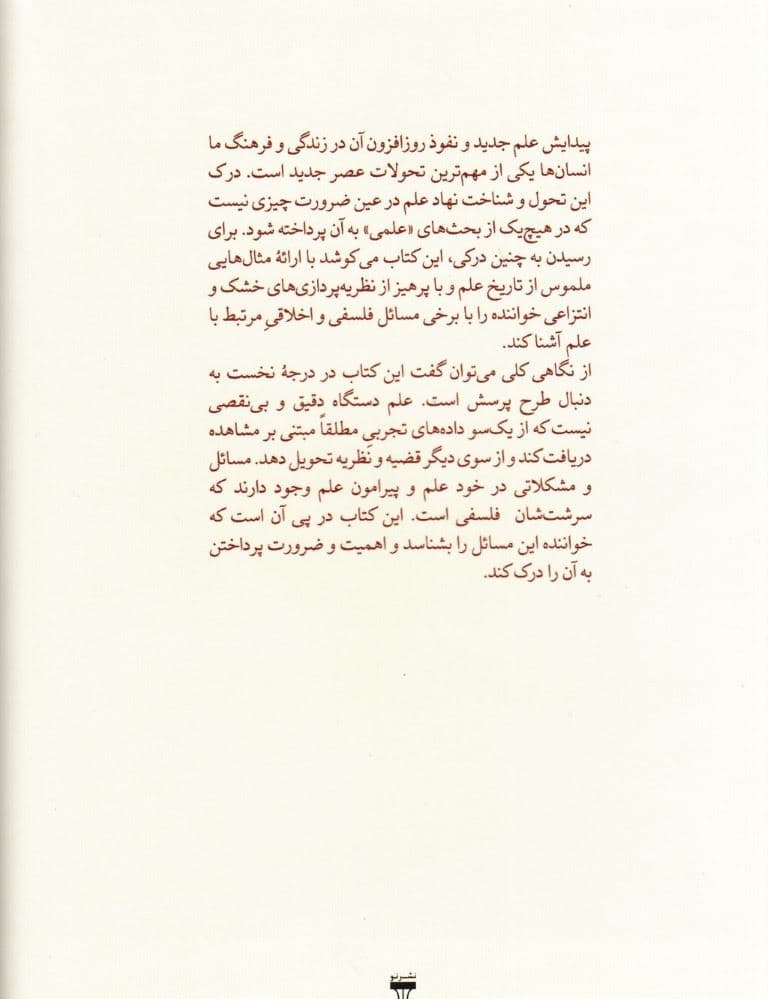 پیدایش علم جدید و نفوذ روزافزون آن در زندگی و فرهنگ ما
انسان‌ها یکی از مهم‌ترین تحولات عصر جدید است. درک
این تحول و شناخت نهاد علم در عین ضرورت چیزی نیست
که در هیچ‌یک از بحث‌های «علمی» به آن پرداخته شود. برای
رسیدن به چنین درکی، این کتاب می‌کوشد با ارائهٔ مثال‌هایی
ملموس از تاریخ علم و با پرهیز از نظریه‌پردازی‌های خشک و
انتزاعی خواننده را با برخی مسائل فلسفی و اخلاقیِ مرتبط با
علم آشنا کند.
از نگاهی کلی می‌توان گفت این کتاب در درجهٔ نخست به
دنبال طرح پرسش است. علم دستگاه دقیق و بی‌نقصی
نیست که از یک‌سو داده‌های تجربیِ مطلقاً مبتنی بر مشاهده
دریافت کند و از سوی دیگر قضیه و نظریه تحویل دهد. مسائل
و مشکلاتی در خود علم و پیرامون علم وجود دارند که
سرشت‌شان فلسفی است. این کتاب در پی آن است که
خواننده این مسائل را بشناسد و اهمیت و ضرورت پرداختن
به آن را درک کند.
نشر نو